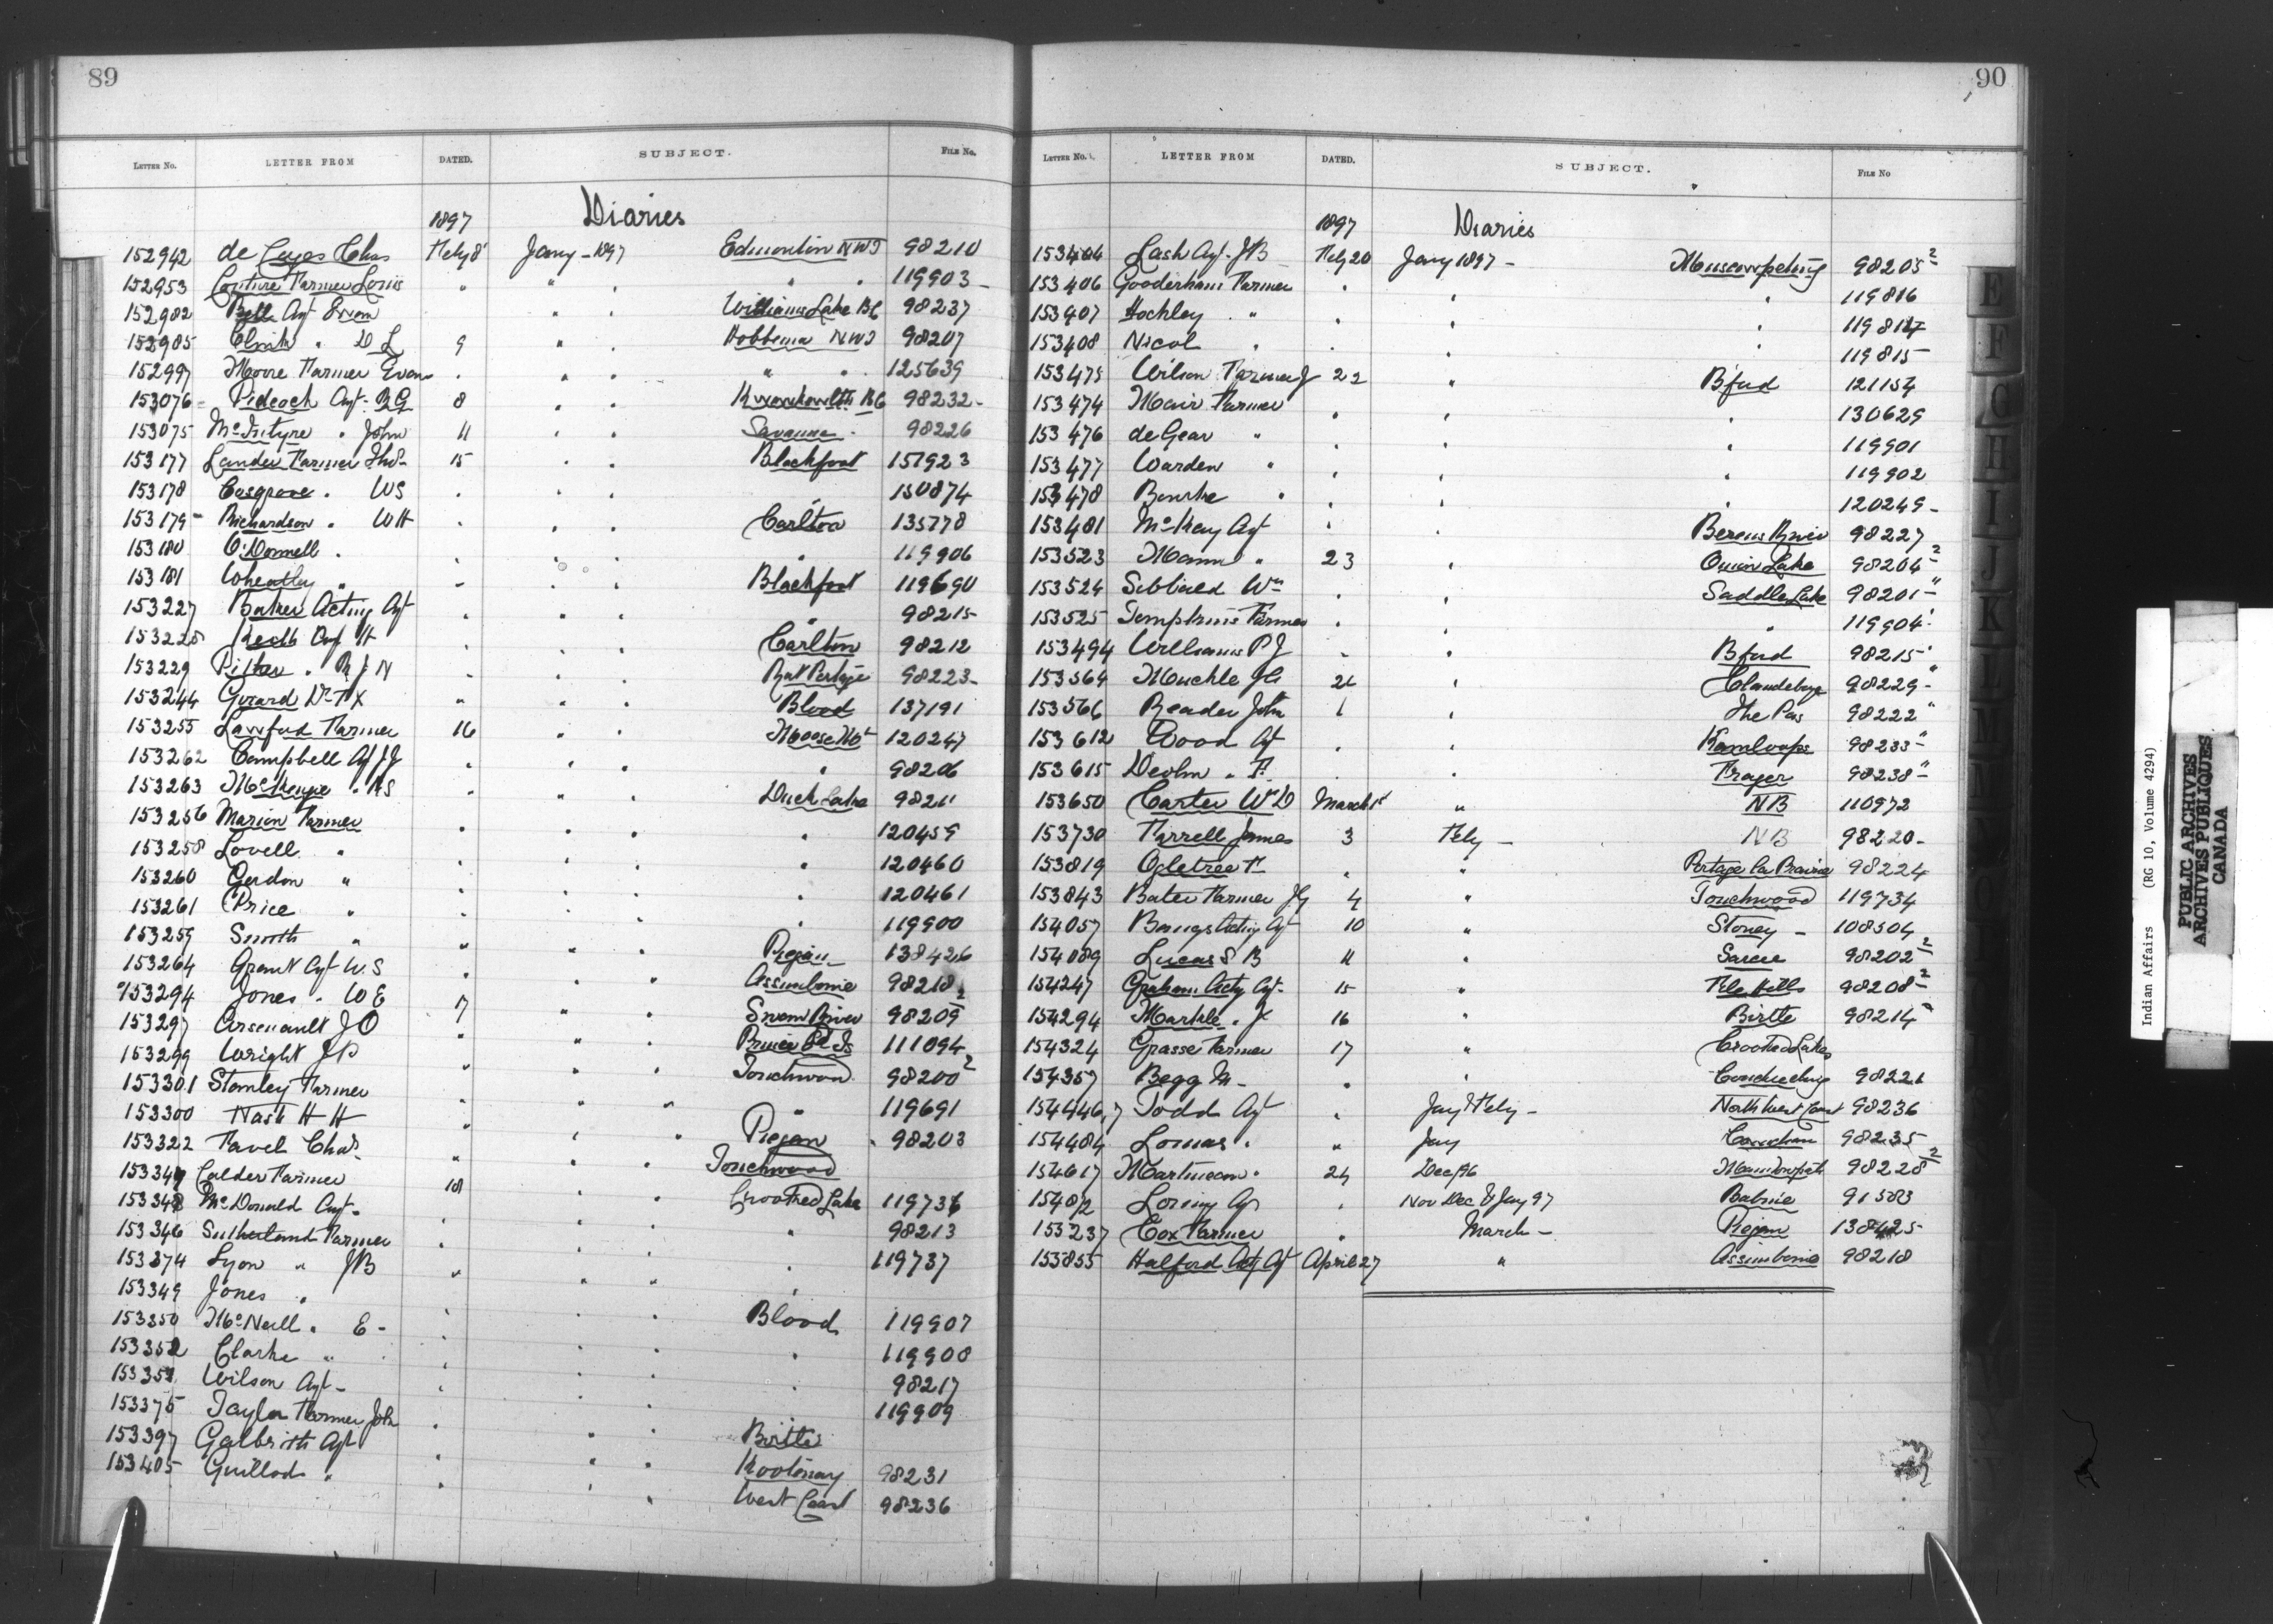 89
LETTER No. LETTER FROM DATED. SUBJECT. FILE No.
1897 Diaries
152942 de Cazes Chas Feby 8 Jany - 1897 Edmonton NWT 98210
152953 Couture Farmer Louis " " " " 119903
152982 Bell Agt Ewen " " Williams Lake BC 98237
152985 Clink " D L 9 " " Hobbema NWT 98207
152997 Moore Farmer Evans " " " " " 125639
153076 Pidcock Agt. RG 8 " " Kwawkewlth BC 98232
153075 McIntyre " John 11 " " Savanne 98226
153177 Lander Farmer Thos 15 " " Blackfoot 151923
153178 Cosgrave " WS " " " " 150874
153179 Richardson " WH " " " Carlton 135778
153180 O'Donnell " " " " " 119906
153181 Wheatley " " " " Blackfoot 119690
153227 Baker Acting Agt " " " " 98215
153228 Keith Agt H " " " Carlton 98212
153229 Pither " R J N " " " Rat Portage 98223
153244 Girard Dr FX " " " Blood 137191
153255 Lawford Farmer 16 " " Moose Mt 120247
153262 Campbell Agt JJ " " " " 98206
153263 McKenzie " RS " " " Duck Lake 98211
153256 Marion Farmer " " " " 120459
153258 Lovell " " " " " 120460
153260 Gordon " " " " " 120461
153261 Price " " " " " 119900
153259 Smith " " " " Piegan 138426
153264 Grant Agt W.S " " " Assiniboine 98218
153294 Jones " WE 17 " " Swan River 98209 2
153297 Arsenault JO " " " Prince Ed Is 111094
153299 Wright JP " " " Touchwood 98200 2
153301 Stanley Farmer " " " " 119691
153300 Nash H H " " " Piegan 98203
153322 Favel Chas " " " Touchwood
153347 Calder Farmer 18 " " Crooked Lake 119736
153348 McDonald Agt. " " " " 98213
153346 Sutherland Farmer " " " " 119737
153374 Lyon " JB " " " "
153349 Jones " " " " Blood 119907
153350 McNeill " E - " " " " 119908
153352 Clarke " " " " " 98217
153351 Wilson Agt - " " " 119909
153375 Taylor Farmer John " " " Birtle
153397 Galbraith Agt " " " Kootenay 98231
153405 Guillod " " " " West Coast 98236
90
LETTER No. LETTER FROM DATED. SUBJECT. FILE No
1897 Diaries
153404 Lash Agt. JB Feby 20 Jany 1897 - Muscowpetung 98205 2
153406 Gooderham Farmer " " " 119816
153407 Hockley " " " " 119817
153408 Nicol " " " " 119815
153475 Wilson Farmer J 22 " Bford 121154
153474 Mair Farmer " " " 130629
153476 deGear " " " " 119901
153477 Warden " " " " 119902
153478 Bourke " " " " 120249
153481 McKay Agt " " Berens River 98227
153523 Mann " 23 " Onion Lake 98204 2
153524 Sibbald Wm " " Saddle Lake 98201 "
153525 Tompkins Farmer " " " 119904
153494 Williams P J " " Bford 98215
153564 Muckle JG 26 " Clandeboye 98229 "
153566 Reader John 1 " The Pas 98222 "
153612 Wood Agt " " Kamloops 98233 "
153615 Devlin " F. " " Fraser 98238 "
153650 Carter Wm D March 1st " NB 110972
153730 Farrell James 3 Feby - NB 98220
153819 Ogletree F " " Portage La Prairie 98224
153843 Bater Farmer JG 4 " Touchwood 119734
154057 Bangs Acting Agt 10 " Stoney - 108504
154089 Lucas S B 11 " Sarcee 98202 2
154247 Graham Actg Agt. 15 " File Hills 98208 2
154294 Markle " J 16 " Birtle 98214 "
154324 Grasse Farmer 17 " Crooked Lakes
154357 Begg M - " " Couchiching 98221
154446,7 Todd Agt " Jany & Feby - North West Coast 98236
154484 Lomas " " Jany Cowichan 98235
154617 Martineau " 24 Dec/96 Manitowpah 98228 2
154812 Loring Agt " Nov Dec & Jany 97 Babine 91583
153237 Cox Farmer " March - Piegan 138425
155855 Halford Actg Agt April 27 " Assiniboine 98218
E
F
G
H
I
J
K
L
M
Indian Affairs (RG 10, Volume 4294)
PUBLIC ARCHIVES
ARCHIVES PUBLIQUES
CANADA